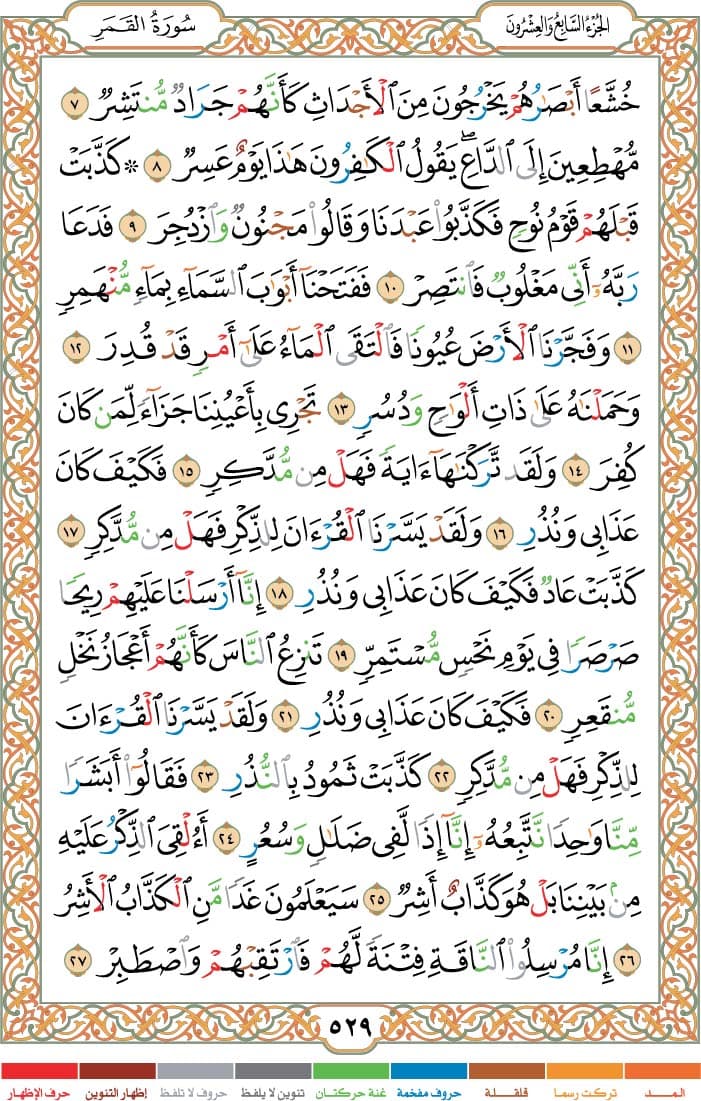 الجُزْءُ السَّابِعُ وَالعِشْرُونَ
سُورَةُ القَمَرِ
خُشَّعًا أَبْصَٰرُهُمْ يَخْرُجُونَ مِنَ ٱلْأَجْدَاثِ كَأَنَّهُمْ جَرَادٌ مُّنتَشِرٌ ٧
مُّهْطِعِينَ إِلَى ٱلدَّاعِ ۖ يَقُولُ ٱلْكَٰفِرُونَ هَٰذَا يَوْمٌ عَسِرٌ ٨ ۞ كَذَّبَتْ
قَبْلَهُمْ قَوْمُ نُوحٍ فَكَذَّبُوا۟ عَبْدَنَا وَقَالُوا۟ مَجْنُونٌ وَٱزْدُجِرَ ٩ فَدَعَا
رَبَّهُۥٓ أَنِّى مَغْلُوبٌ فَٱنتَصِرْ ١٠ فَفَتَحْنَآ أَبْوَٰبَ ٱلسَّمَآءِ بِمَآءٍ مُّنْهَمِرٍ
١١ وَفَجَّرْنَا ٱلْأَرْضَ عُيُونًا فَٱلْتَقَى ٱلْمَآءُ عَلَىٰٓ أَمْرٍ قَدْ قُدِرَ ١٢
وَحَمَلْنَٰهُ عَلَىٰ ذَاتِ أَلْوَٰحٍ وَدُسُرٍ ١٣ تَجْرِى بِأَعْيُنِنَا جَزَآءً لِّمَن كَانَ
كُفِرَ ١٤ وَلَقَد تَّرَكْنَٰهَآ ءَايَةً فَهَلْ مِن مُّدَّكِرٍ ١٥ فَكَيْفَ كَانَ
عَذَابِى وَنُذُرِ ١٦ وَلَقَدْ يَسَّرْنَا ٱلْقُرْءَانَ لِلذِّكْرِ فَهَلْ مِن مُّدَّكِرٍ ١٧
كَذَّبَتْ عَادٌ فَكَيْفَ كَانَ عَذَابِى وَنُذُرِ ١٨ إِنَّآ أَرْسَلْنَا عَلَيْهِمْ رِيحًا
صَرْصَرًا فِى يَوْمِ نَحْسٍ مُّسْتَمِرٍّ ١٩ تَنزِعُ ٱلنَّاسَ كَأَنَّهُمْ أَعْجَازُ نَخْلٍ
مُّنقَعِرٍ ٢٠ فَكَيْفَ كَانَ عَذَابِى وَنُذُرِ ٢١ وَلَقَدْ يَسَّرْنَا ٱلْقُرْءَانَ
لِلذِّكْرِ فَهَلْ مِن مُّدَّكِرٍ ٢٢ كَذَّبَتْ ثَمُودُ بِٱلنُّذُرِ ٢٣ فَقَالُوٓا۟ أَبَشَرًا
مِّنَّا وَٰحِدًا نَّتَّبِعُهُۥٓ إِنَّآ إِذًا لَّفِى ضَلَٰلٍ وَسُعُرٍ ٢٤ أَءُلْقِىَ ٱلذِّكْرُ عَلَيْهِ
مِنۢ بَيْنِنَا بَلْ هُوَ كَذَّابٌ أَشِرٌ ٢٥ سَيَعْلَمُونَ غَدًا مَّنِ ٱلْكَذَّابُ ٱلْأَشِرُ
٢٦ إِنَّا مُرْسِلُوا۟ ٱلنَّاقَةِ فِتْنَةً لَّهُمْ فَٱرْتَقِبْهُمْ وَٱصْطَبِرْ ٢٧
٥٢٩
المـــد تركت رسما قلقلة حروف مفخمة غنة حركتان تنوين لا يلفظ حروف لا تلفظ إظهار التنوين حرف الإظهار